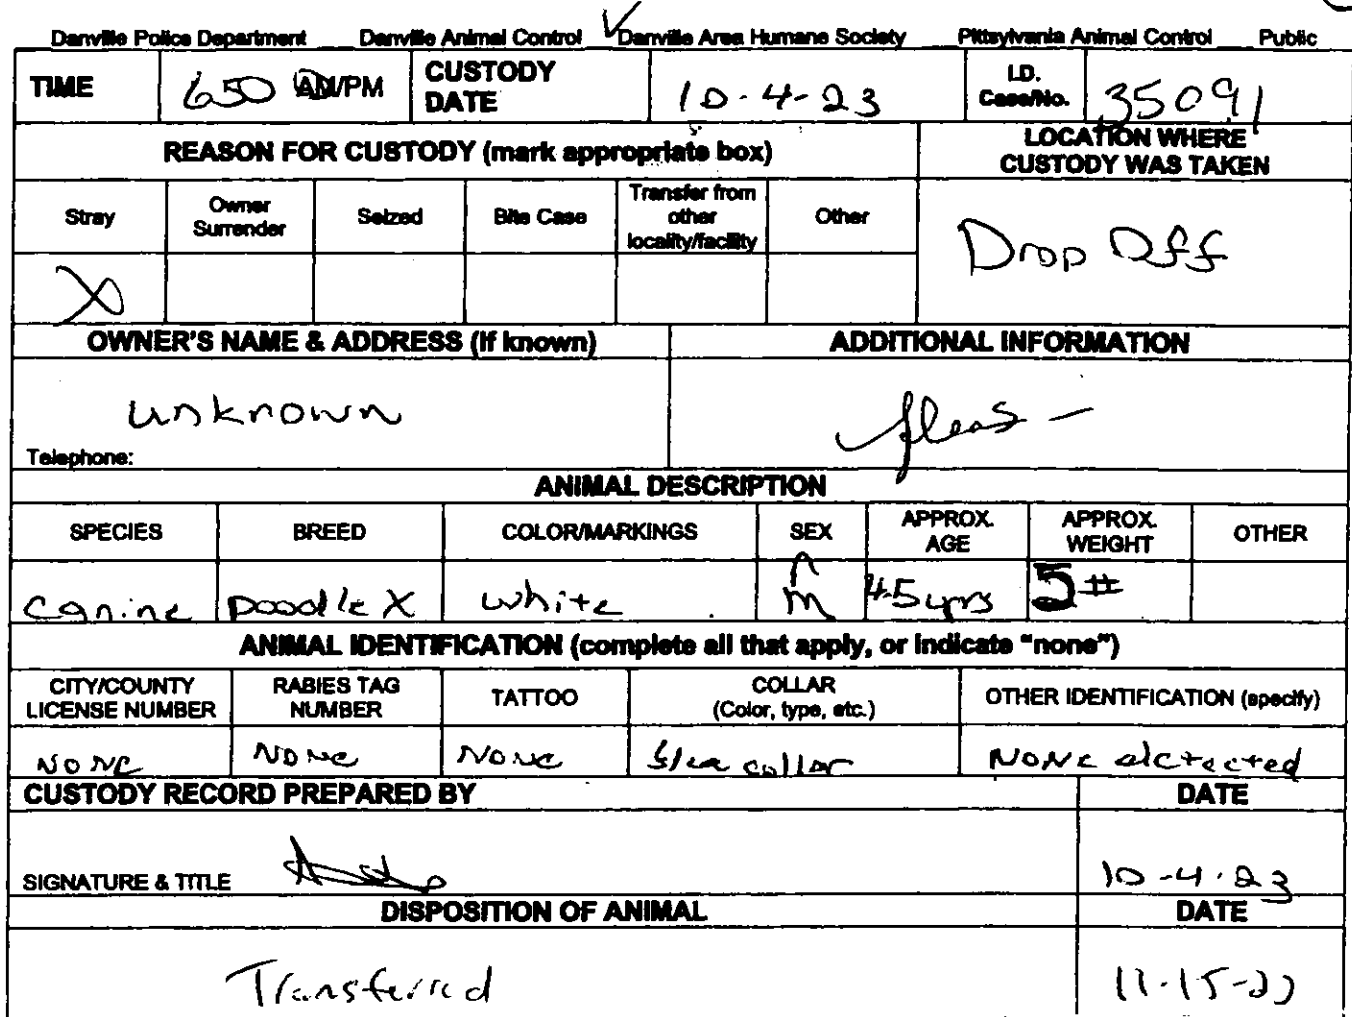 Danville Police Department Danville Animal Control ✓ Danville Area Humane Society Pittsylvania Animal Control Public
TIME 650 AM/PM CUSTODY DATE 10-4-23 I.D. Case/No. 35091
REASON FOR CUSTODY (mark appropriate box) LOCATION WHERE CUSTODY WAS TAKEN
Stray Owner Surrender Seized Bite Case Transfer from other locality/facility Other
X
Drop Off
OWNER'S NAME & ADDRESS (If known) ADDITIONAL INFORMATION
unknown fleas -
Telephone:
ANIMAL DESCRIPTION
SPECIES BREED COLOR/MARKINGS SEX APPROX. AGE APPROX. WEIGHT OTHER
canine poodle X white m 4-5 yrs 5#
ANIMAL IDENTIFICATION (complete all that apply, or indicate "none")
CITY/COUNTY LICENSE NUMBER RABIES TAG NUMBER TATTOO COLLAR (Color, type, etc.) OTHER IDENTIFICATION (specify)
NONE NONE NONE collar NONE detected
CUSTODY RECORD PREPARED BY DATE
SIGNATURE & TITLE 10-4-23
DISPOSITION OF ANIMAL DATE
Transferred 11-15-23